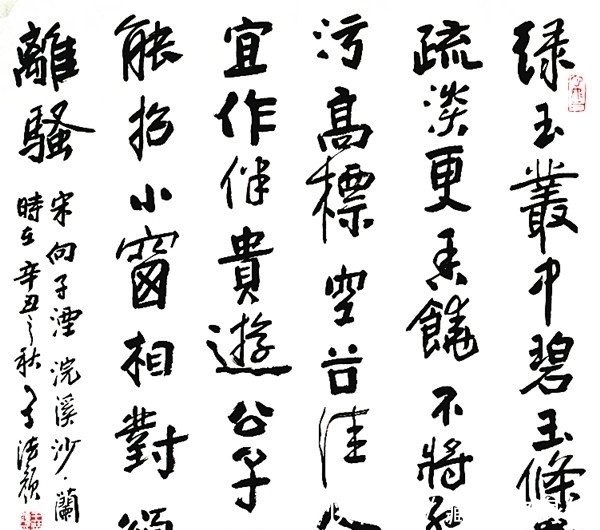 绿玉叢中碧玉條
疏淡更香饒不將
污高標空谷佳人
宜作伴貴遊公子
能招小窗相對誦
離騷
宋向子湮浣溪沙·蘭
時在辛丑之秋